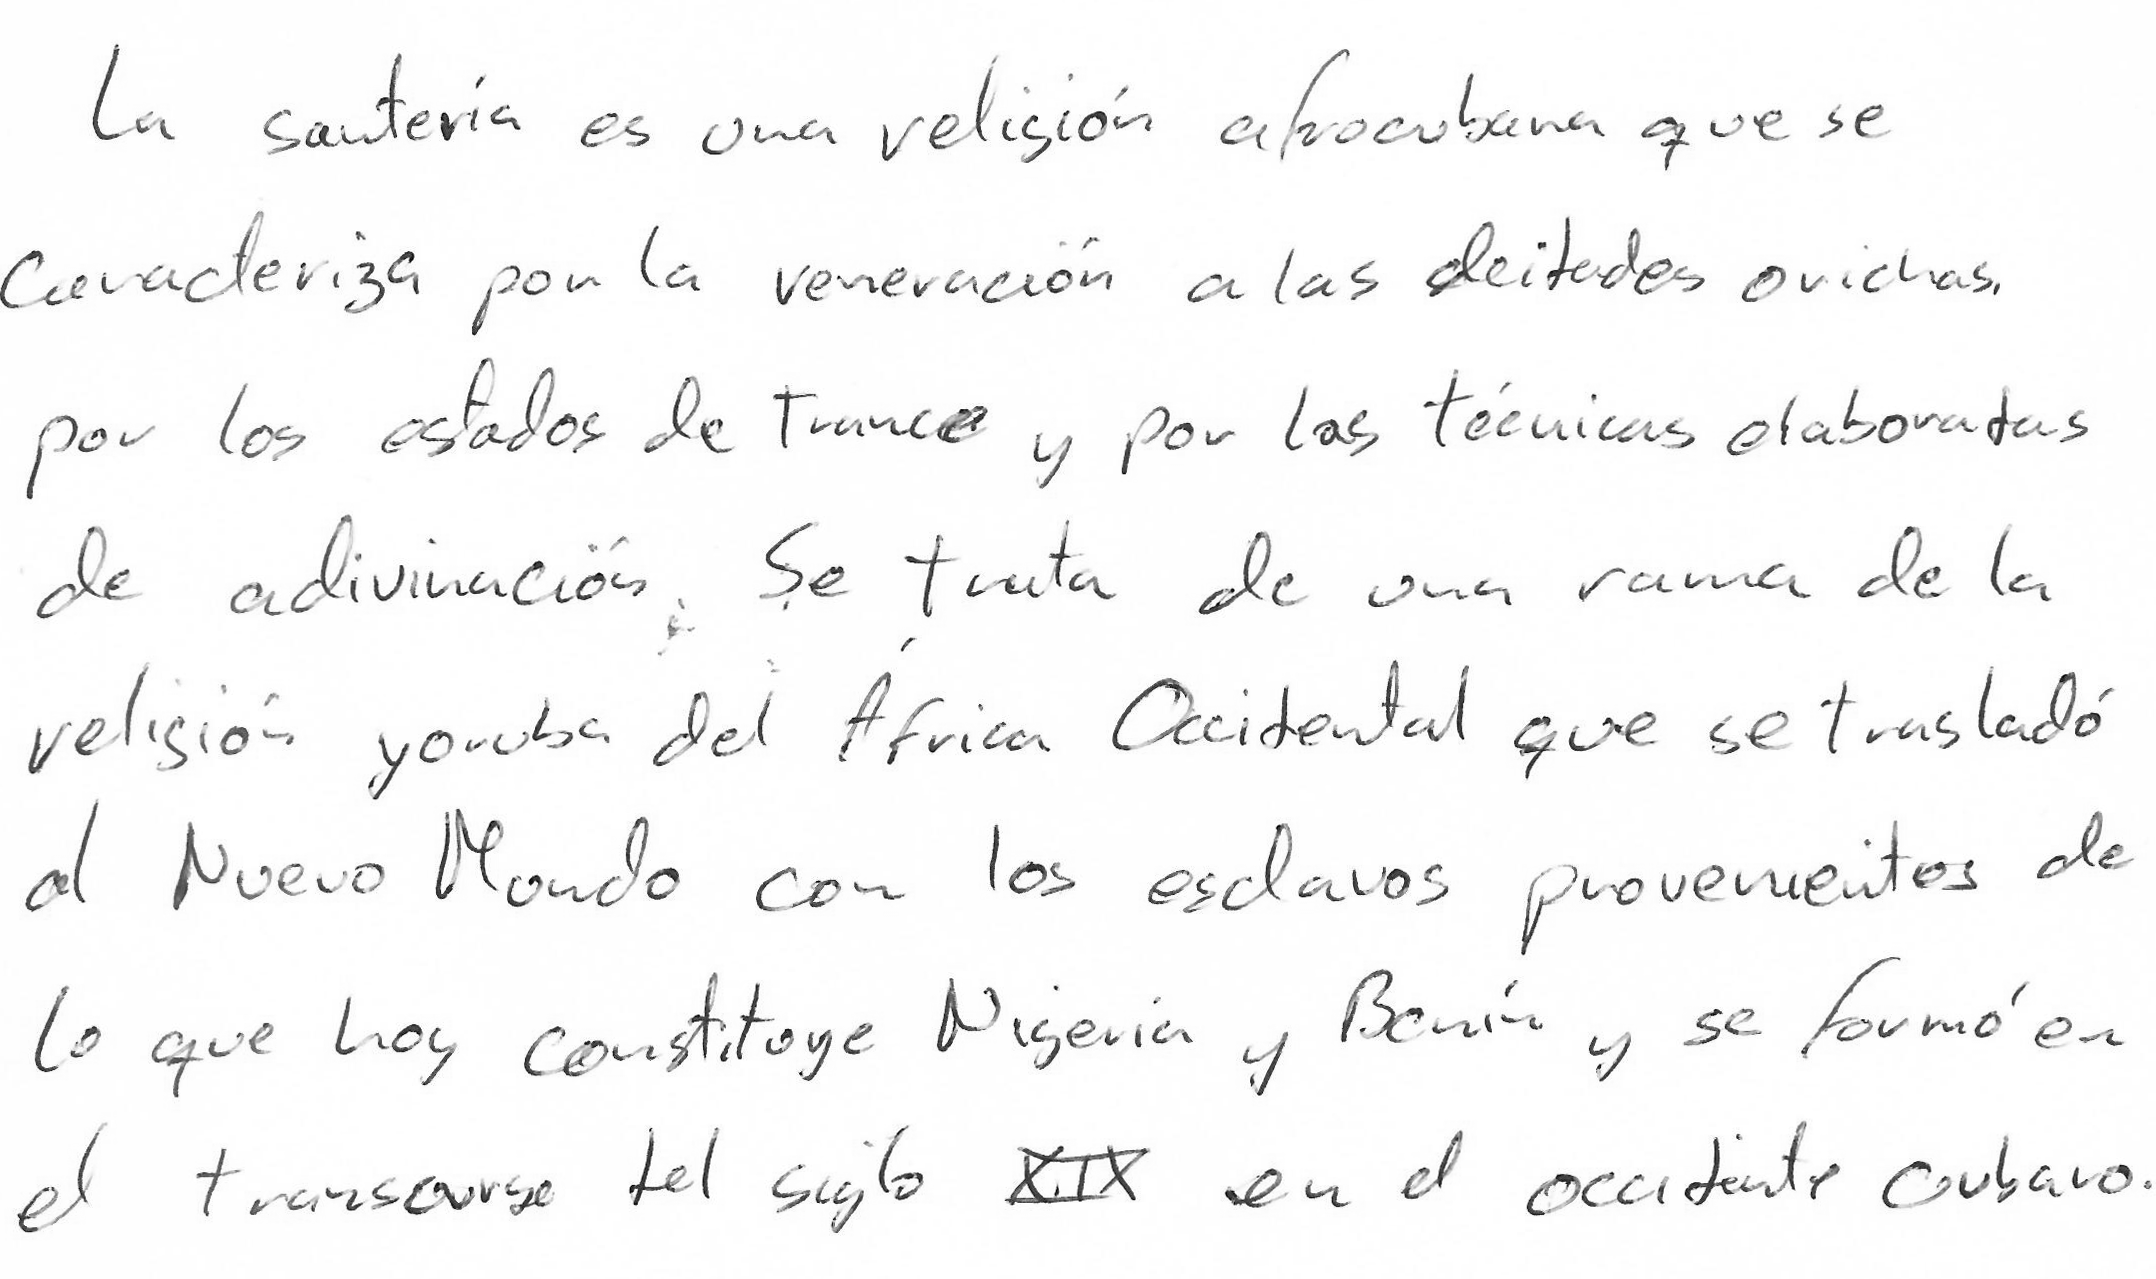 La santería es una religión afrocubana que se
caracteriza por la veneración a las deitades orichas,
por los estados de trance y por las técnicas elaboradas
de adivinación. Se trata de una rama de la
religión yoruba del África Occidental que se trasladó
al Nuevo Mundo con los esclavos provenientes de
lo que hoy constituye Nigeria y Benín y se formó en
el transcurso del siglo XIX en el occidente cubano.